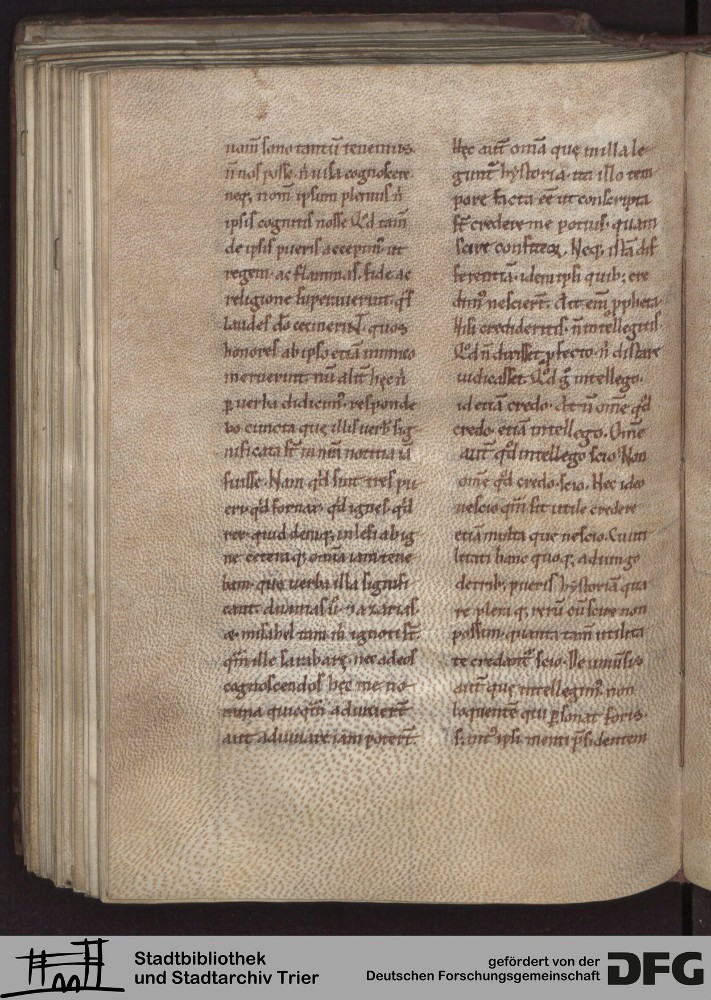 nom̄ sono tantū tenemus.
n̄ nos posse. n̄ uisa cognoscere
neq; nom̄ ipsum plenius n̄
ipsis cognitis nosse Qd̄ tam̄
de ipsis pueris accepim᷒ ut
regem. ac flammas. fide ac
religione superauerint. q̄s
laudes dō cecinerint. quos
honores ab ipso etiā inimico
meruerint. nū alit̄ hęc n̄
ꝑ uerba didicim᷒. responde
bo cuncta que illis uerb̄ sig
nificata st̄ in nr̄a notitia iā
fuisse. Nam qd̄ sint tres pu
eri. qd̄ fornax. qd̄ ignes. qd̄
rex. quid deniq; inlesi ab ig
ne ceteraq; om̄a iam tene
bam. que uerba illa signifi
cant. ananias ū ⁊ azarias.
& misahel tam m̄ ignoti st̄.
qm̄ ille sarabarę. nec ad eos
cognoscendos hęc me no
mina quicqm̄ adiuuert̄
aut adiuuare iam potert̄.
Hęc aut̄ om̄a quę in illa le
gunt̄ hystoria. ita illo tem
pore facta eē. ut conscripta
st̄ credere me potius. quam
scire confiteor. Neq; istā dif
ferentiā. idem ipsi quib; cre
dim᷒ nesciert̄. Ait eni ꝓpheta.
Nisi credideritis. n̄ intellegetis.
Qd̄ n̄ dixisset ꝓfecto. n̄ distare
iudicasset. Qd̄ g̊ intellego.
id etiā credo. At n̄ om̄e qd̄
credo. etiā intellego. Om̄e
aut̄ qd̄ intellego scio. Non
om̄e qd̄ credo. scio. Nec ideo
nescio qm̄ sit utile credere
etiā multa que nescio. Cui uti
litati hanc quoq; adiungo
de trib; pueris hystoriā. qua
re pleraq; rerū cū scire non
possum. quanta tam̄ utilita
te credant̄ scio. De uniūsis
aut̄ quę intellegim᷒. non
loquentē qui ꝑsonat foris.
s; int᷒ ipsi menti p̄sidentem
Stadtbibliothek
und Stadtarchiv Trier
gefördert von der
Deutschen Forschungsgemeinschaft
DFG